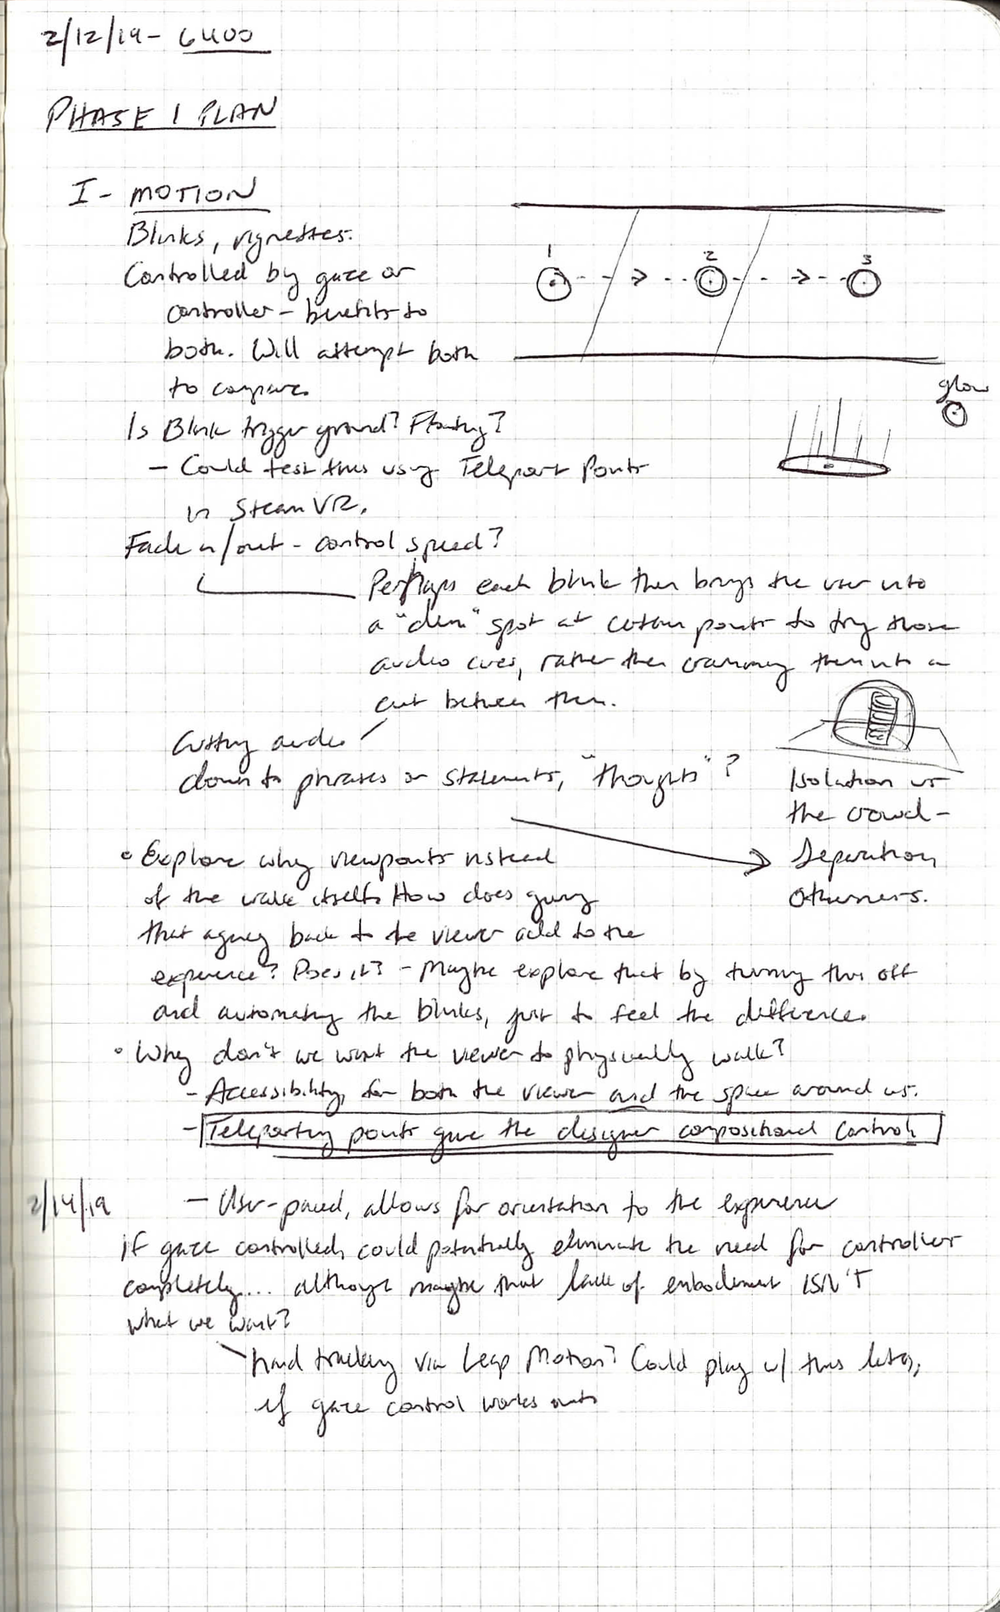 2/12/19 - 6400
PHASE 1 PLAN
I - MOTION
Blinks, vignettes.
Controlled by gaze or
controller - benefits to
both. Will attempt both
to compare.
1 2 3
glow
Is Blink trigger ground? Floating?
- Could test this using Teleport Points
in Steam VR.
Fade in/out - control speed?
Perhaps each blink then brings the user into
a "dim" spot at certain points to try those
audio cues, rather than cramming them into a
cut between them.
Cutting audio
down to phrases or statements, "thoughts"?
Isolation vs
the crowd -
Separation
Otherness.
• Explore why viewpoints instead
of the walk itself. How does giving
that agency back to the viewer add to the
experience? Does it? - Maybe explore that by turning this off
and automating the blinks, just to feel the difference.
• Why don't we want the viewer to physically walk?
- Accessibility, for both the viewer and the space around us.
- Teleporting points give the designer compositional control.
2/14/19
- User-paced, allows for orientation to the experience
if gaze controlled, could potentially eliminate the need for controller
completely... although maybe that lack of embodiment ISN'T
what we want?
hand tracking via Leap Motion? Could play w/ this later,
if gaze control works out.